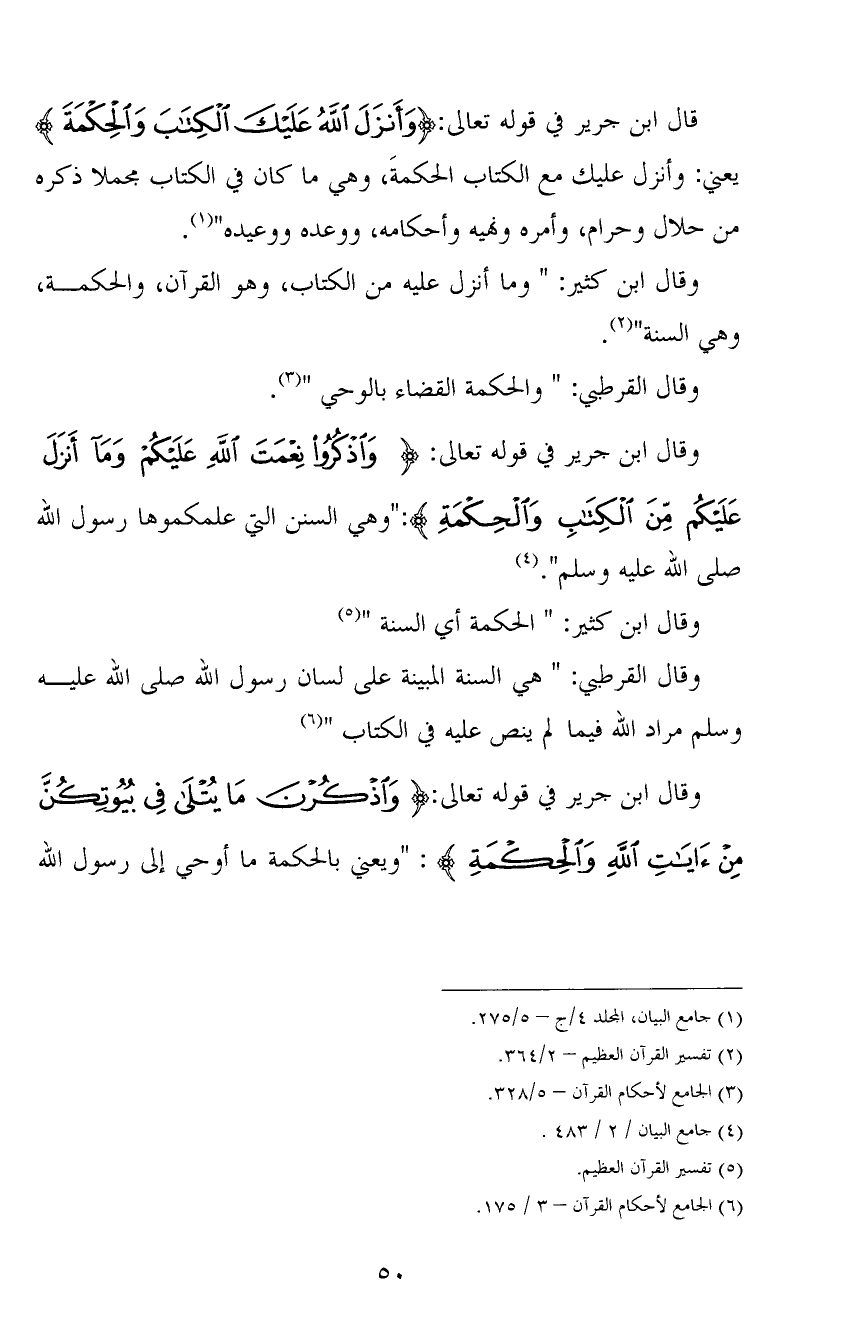 قال ابن جرير في قوله تعالى:﴿وَأَنزَلَ ٱللَّهُ عَلَيْكَ ٱلْكِتَٰبَ وَٱلْحِكْمَةَ ﴾
يعني: وأنزل عليك مع الكتاب الحكمةَ، وهي ما كان في الكتاب مجملا ذكره
من حلال وحرام، وأمره ونهيه وأحكامه، ووعده ووعيده"(١).
وقال ابن كثير: " وما أنزل عليه من الكتاب، وهو القرآن، والحكمـــة،
وهي السنة"(٢).
وقال القرطبي: " والحكمة القضاء بالوحي "(٣).
وقال ابن جرير في قوله تعالى: ﴿ وَٱذْكُرُوا۟ نِعْمَتَ ٱللَّهِ عَلَيْكُمْ وَمَآ أَنزَلَ
عَلَيْكُم مِّنَ ٱلْكِتَٰبِ وَٱلْحِكْمَةِ ﴾:"وهي السنن التي علمكموها رسول الله
صلى الله عليه وسلم".(٤)
وقال ابن كثير: " الحكمة أي السنة "(٥)
وقال القرطبي: " هي السنة المبينة على لسان رسول الله صلى الله عليـــه
وسلم مراد الله فيما لم ينص عليه في الكتاب "(٦)
وقال ابن جرير في قوله تعالى:﴿ وَٱذْكُرْنَ مَا يُتْلَىٰ فِى بُيُوتِكُنَّ
مِنْ ءَايَٰتِ ٱللَّهِ وَٱلْحِكْمَةِ ﴾ : "ويعني بالحكمة ما أوحي إلى رسول الله
(١) جامع البيان، المجلد ٤/ج – ٢٧٥/٥.
(٢) تفسير القرآن العظيم – ٣٦٤/٢.
(٣) الجامع لأحكام القرآن – ٣٢٨/٥.
(٤) جامع البيان / ٢ / ٤٨٣ .
(٥) تفسير القرآن العظيم.
(٦) الجامع لأحكام القرآن – ٣ / ١٧٥.
٥٠